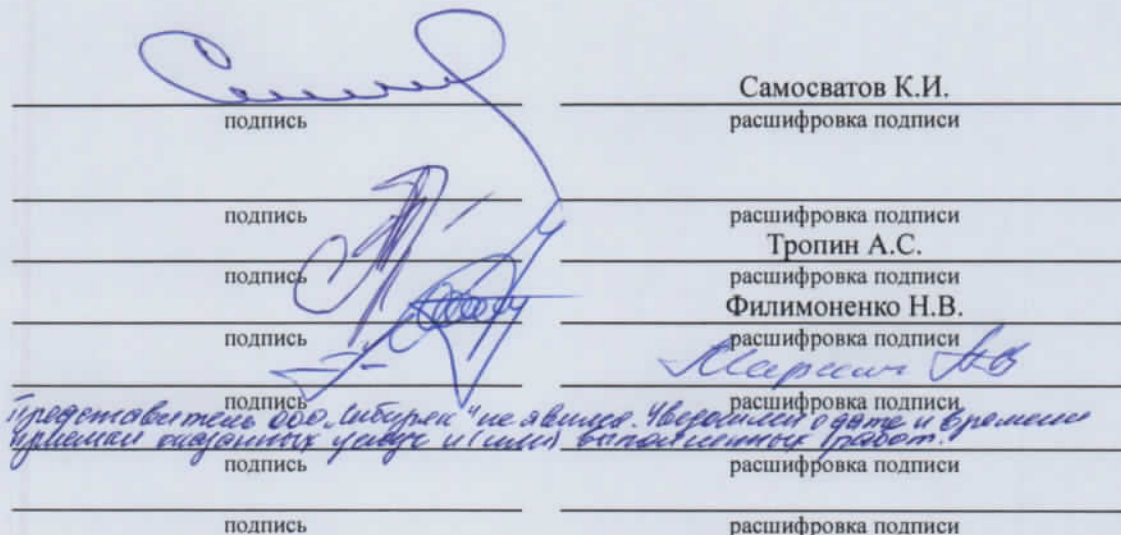 Самосватов К.И.
подпись расшифровка подписи
подпись расшифровка подписи
Тропин А.С.
подпись расшифровка подписи
Филимоненко Н.В.
подпись расшифровка подписи
подпись расшифровка подписи
Представитель ООО " не явился. Уведомлен о дате и времени
приемки оказанных услуг и (или) выполненных работ.
подпись расшифровка подписи
подпись расшифровка подписи